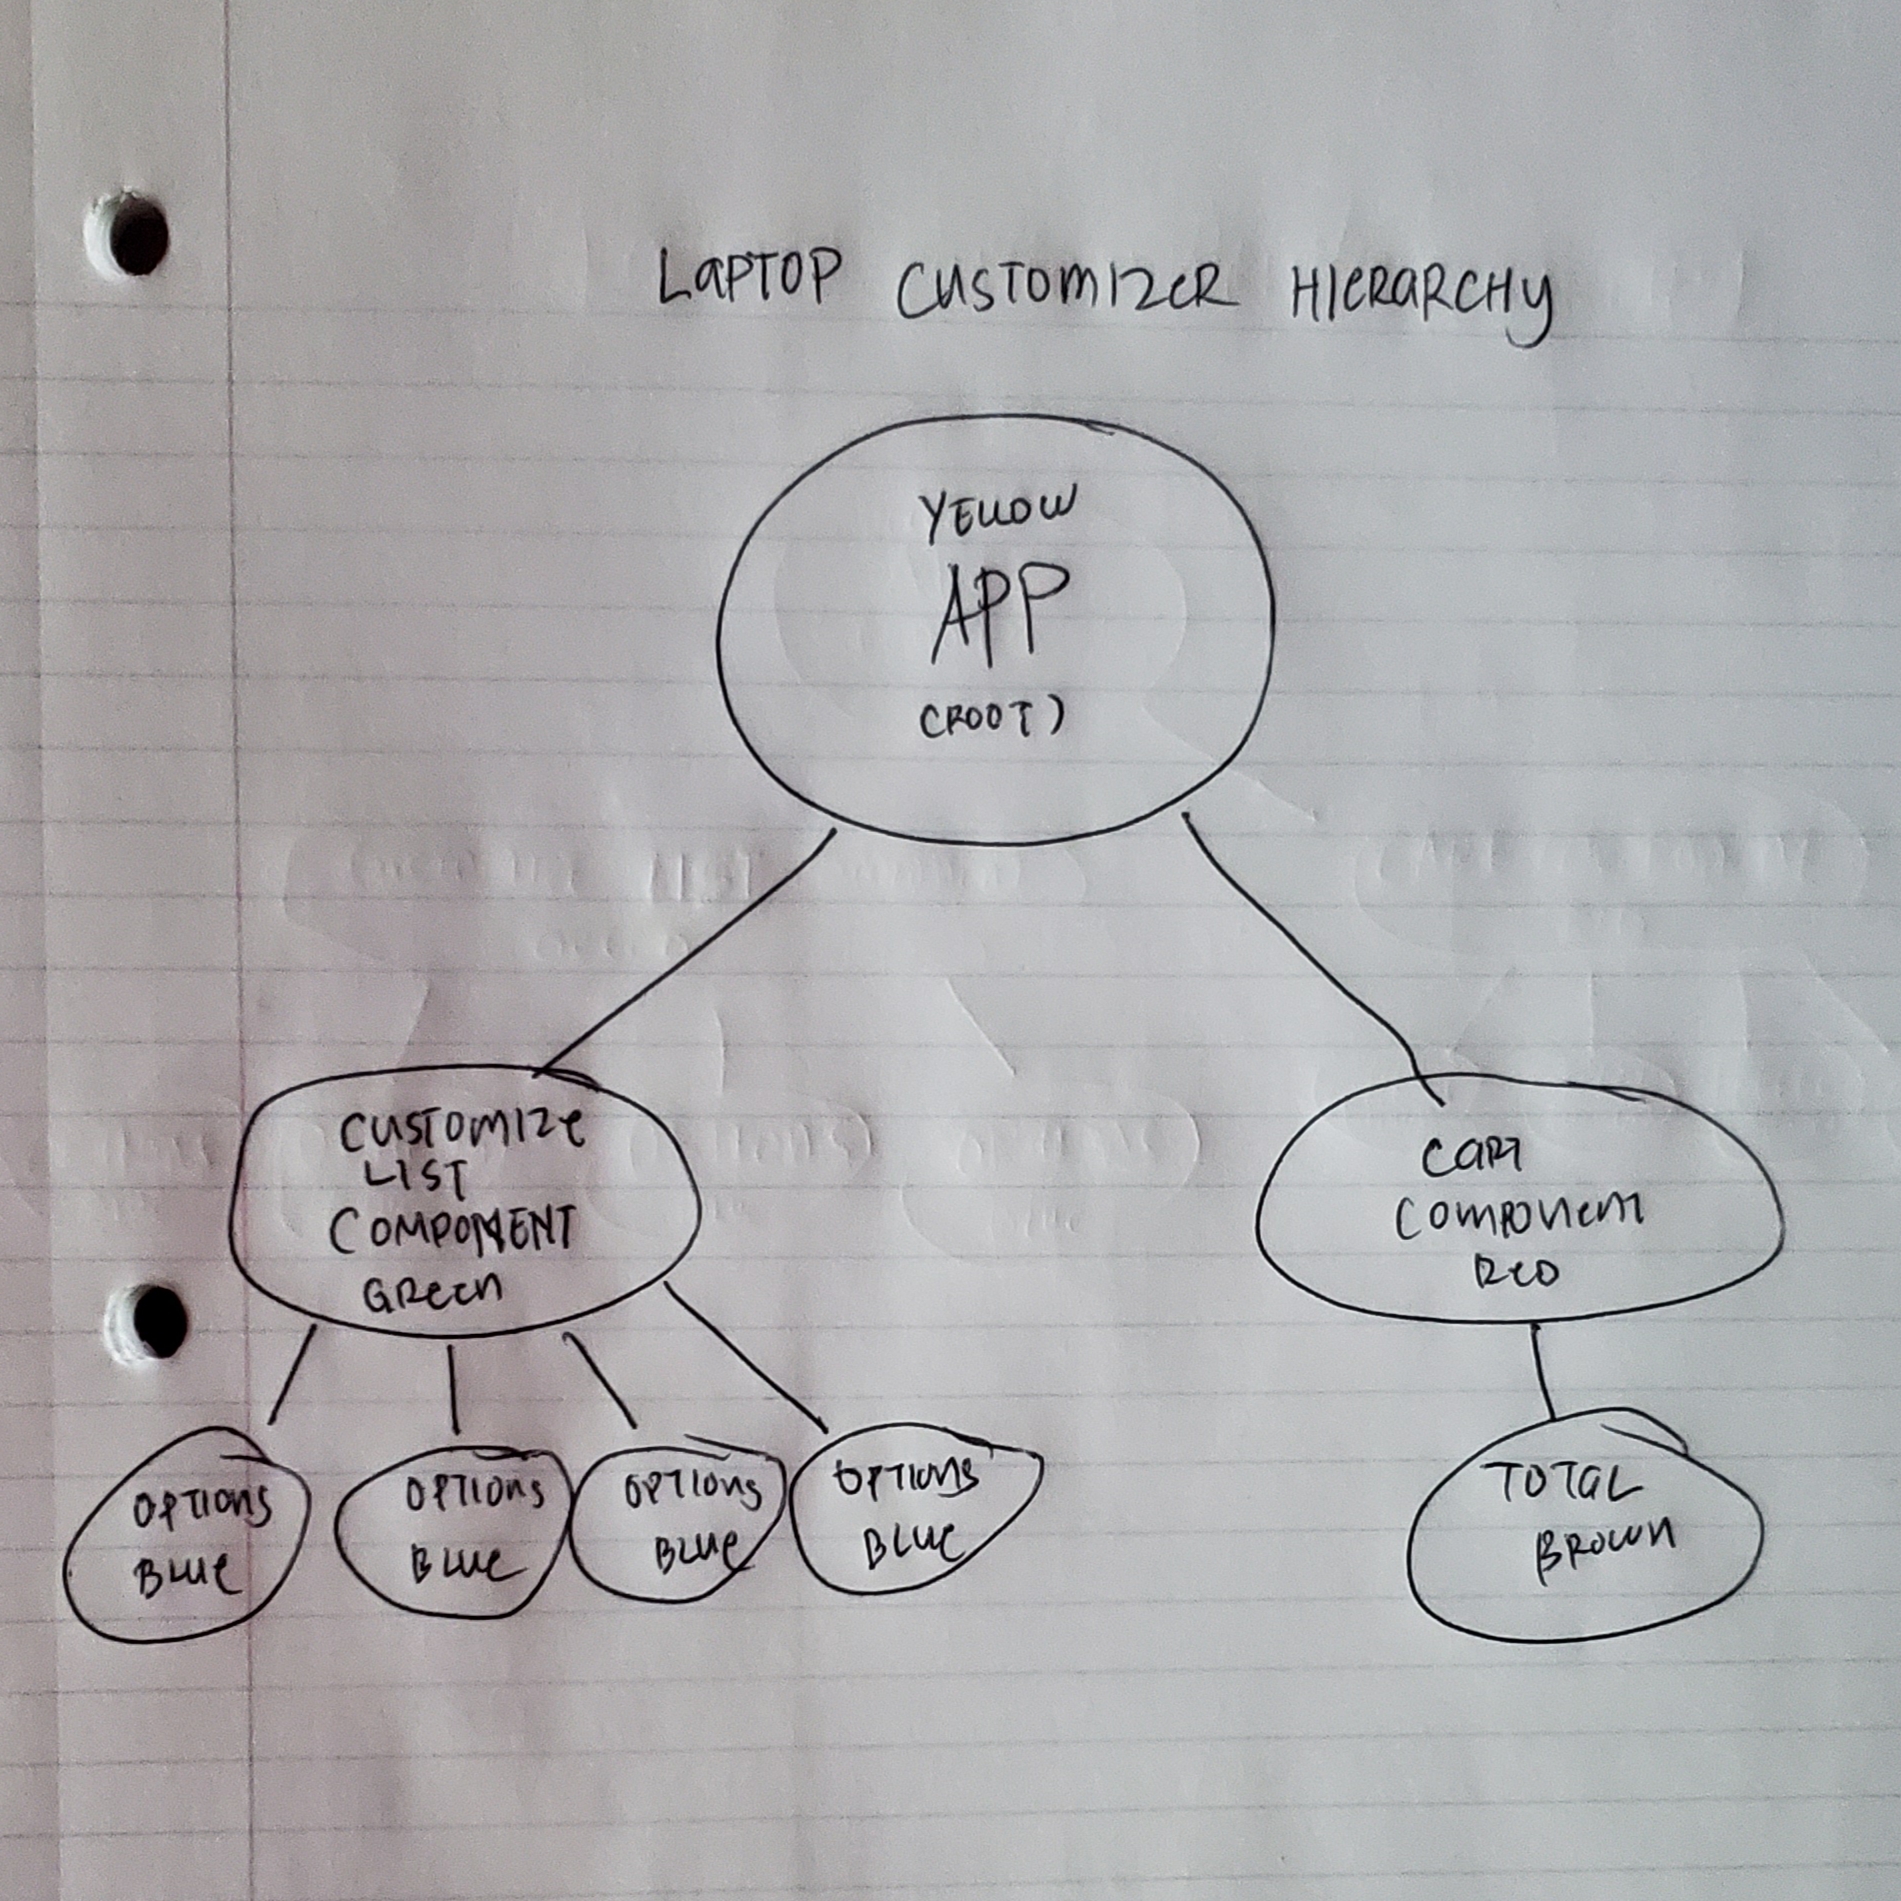 LAPTOP CUSTOMIZER HIERARCHY
YELLOW
APP
(ROOT)
CUSTOMIZE
LIST
COMPONENT
GREEN
CART
COMPONENT
RED
OPTIONS
BLUE
OPTIONS
BLUE
OPTIONS
BLUE
OPTIONS
BLUE
TOTAL
BROWN